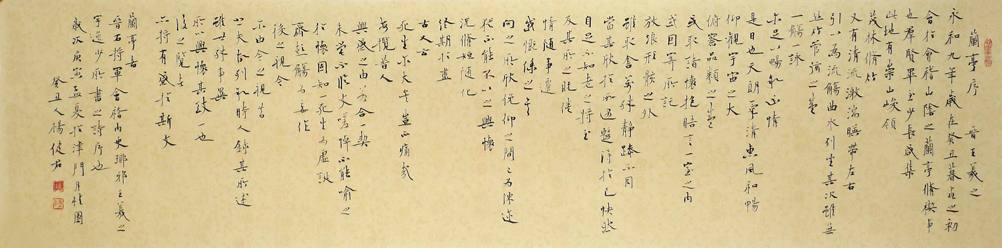 蘭亭序 晉王羲之
永和九年歲在癸丑暮春之初
會於會稽山陰之蘭亭脩稧事
也羣賢畢至少長咸集
此地有崇山峻領
茂林脩竹
又有清流激湍暎帶左右
引以為流觴曲水列坐其次雖無
絲竹管弦之盛
一觴一詠
亦足以暢叙幽情
是日也天朗氣清惠風和暢
仰觀宇宙之大
俯察品類之盛
或取諸懷抱晤言一室之內
或因寄所託
放浪形骸之外
雖取舍萬殊靜躁不同
當其欣於所遇暫得於己快然
自足不知老之將至
及其所之既惓
情隨事遷
感慨係之矣
向之所欣俛仰之間已為陳迹
猶不能不以之興懷
況脩短隨化
終期於盡
古人云
死生亦大矣豈不痛哉
每攬昔人
興感之由若合一契
未嘗不臨文嗟悼不能喻之
於懷固知死生為虛誕
齊彭殤為妄作
後之視今
亦由今之視昔
悲夫故列叙時人錄其所述
雖世殊事異
所以興懷其致一也
後之覽者
亦將有感於斯文
蘭亭者
晉右將軍會稽內史琅琊王羲之
字逸少所書之詩序也
歲次庚寅孟夏於津門月桂園
癸丑人楊健君